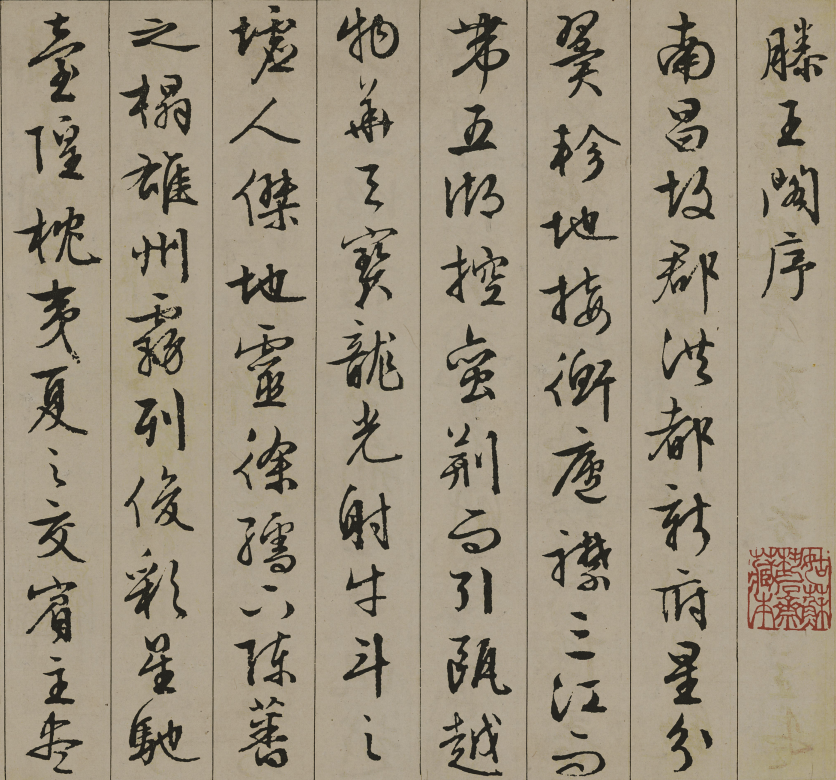 滕王閣序
姑蘇
藏本
南昌故郡洪都新府星分
翼軫地接衡廬襟三江而
帶五湖控蠻荊而引甌越
物華天寶龍光射牛斗之
墟人傑地靈徐孺下陳蕃
之榻雄州霧列俊彩星馳
臺隍枕夷夏之交賓主盡